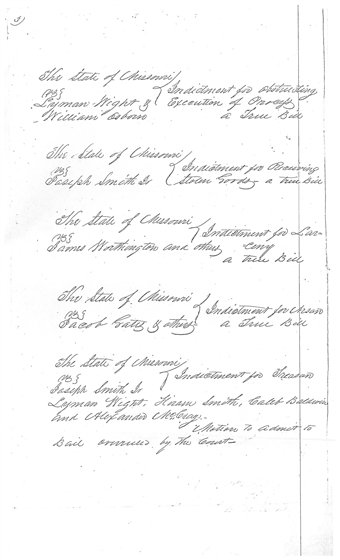 3)
The State of Missouri
vs } Indictment for obstructing
Lyman Wight & Execution of Process
William Osborn a True Bill
The State of Missouri
vs } Indictment for Receiving
Joseph Smith Jr Stolen Goods a true Bill
The State of Missouri
vs } Indictment for Lar-
James Worthington and others ceny
a true Bill
The State of Missouri
vs } Indictment for Treason
Jacob Gates & others a True Bill
The State of Missouri
vs } Indictment for Treason
Joseph Smith Jr
Lyman Wight, Hiram Smith, Caleb Baldwin
and Alexander McCray.
Motion to admit to
Bail overruled by the Court—